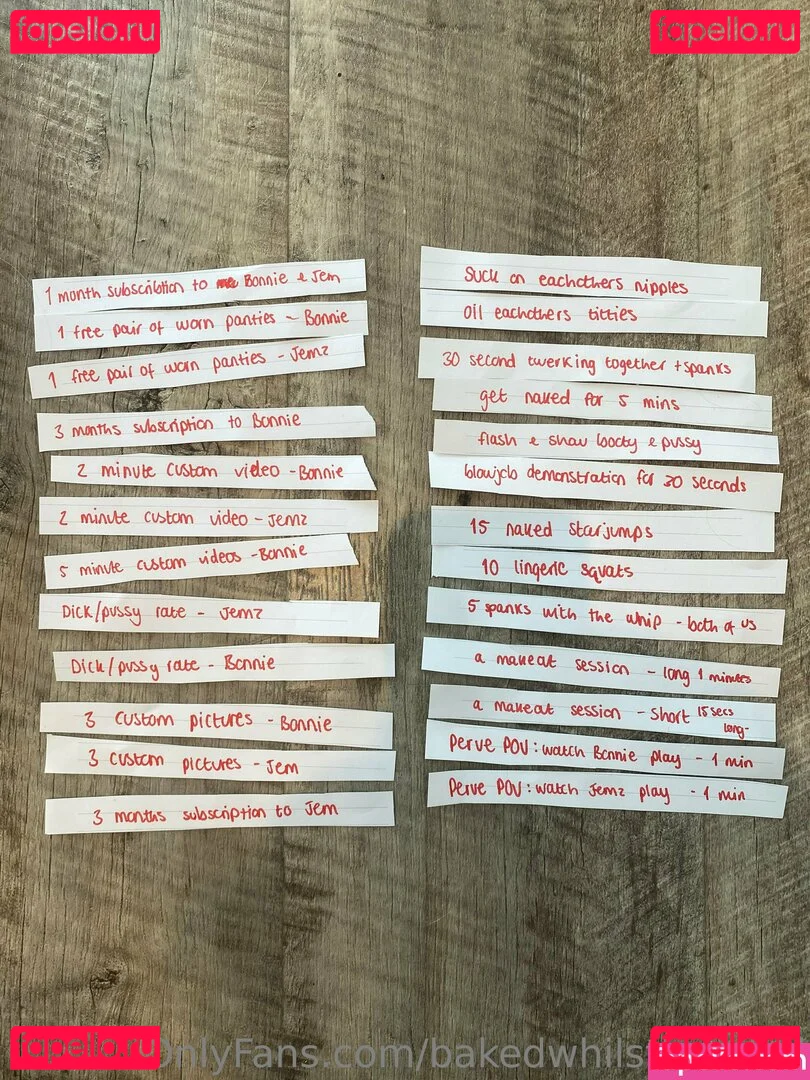 fapello.ru
fapello.ru
1 month subscription to me Bonnie & Jem
1 free pair of worn panties - Bonnie
1 free pair of worn panties - Jemz
3 months subscription to Bonnie
2 minute custom video - Bonnie
2 minute custom video - Jemz
5 minute custom videos - Bonnie
Dick/pussy rate - Jemz
Dick/pussy rate - Bonnie
3 custom pictures - Bonnie
3 custom pictures - Jem
3 months subscription to Jem
Suck on eachothers nipples
oil eachothers titties
30 second twerking together + spanks
get naked for 5 mins
flash & show booty & pussy
blowjob demonstration for 30 seconds
15 naked starjumps
10 lingerie squats
5 spanks with the whip - both of us
a makeout session - long 1 minutes
a makeout session - short 15 secs
long-
Perve POV: watch Bonnie play - 1 min
Perve POV: watch Jemz play - 1 min
fapello.ru
OnlyFans.com/bakedwhils
fapello.ru